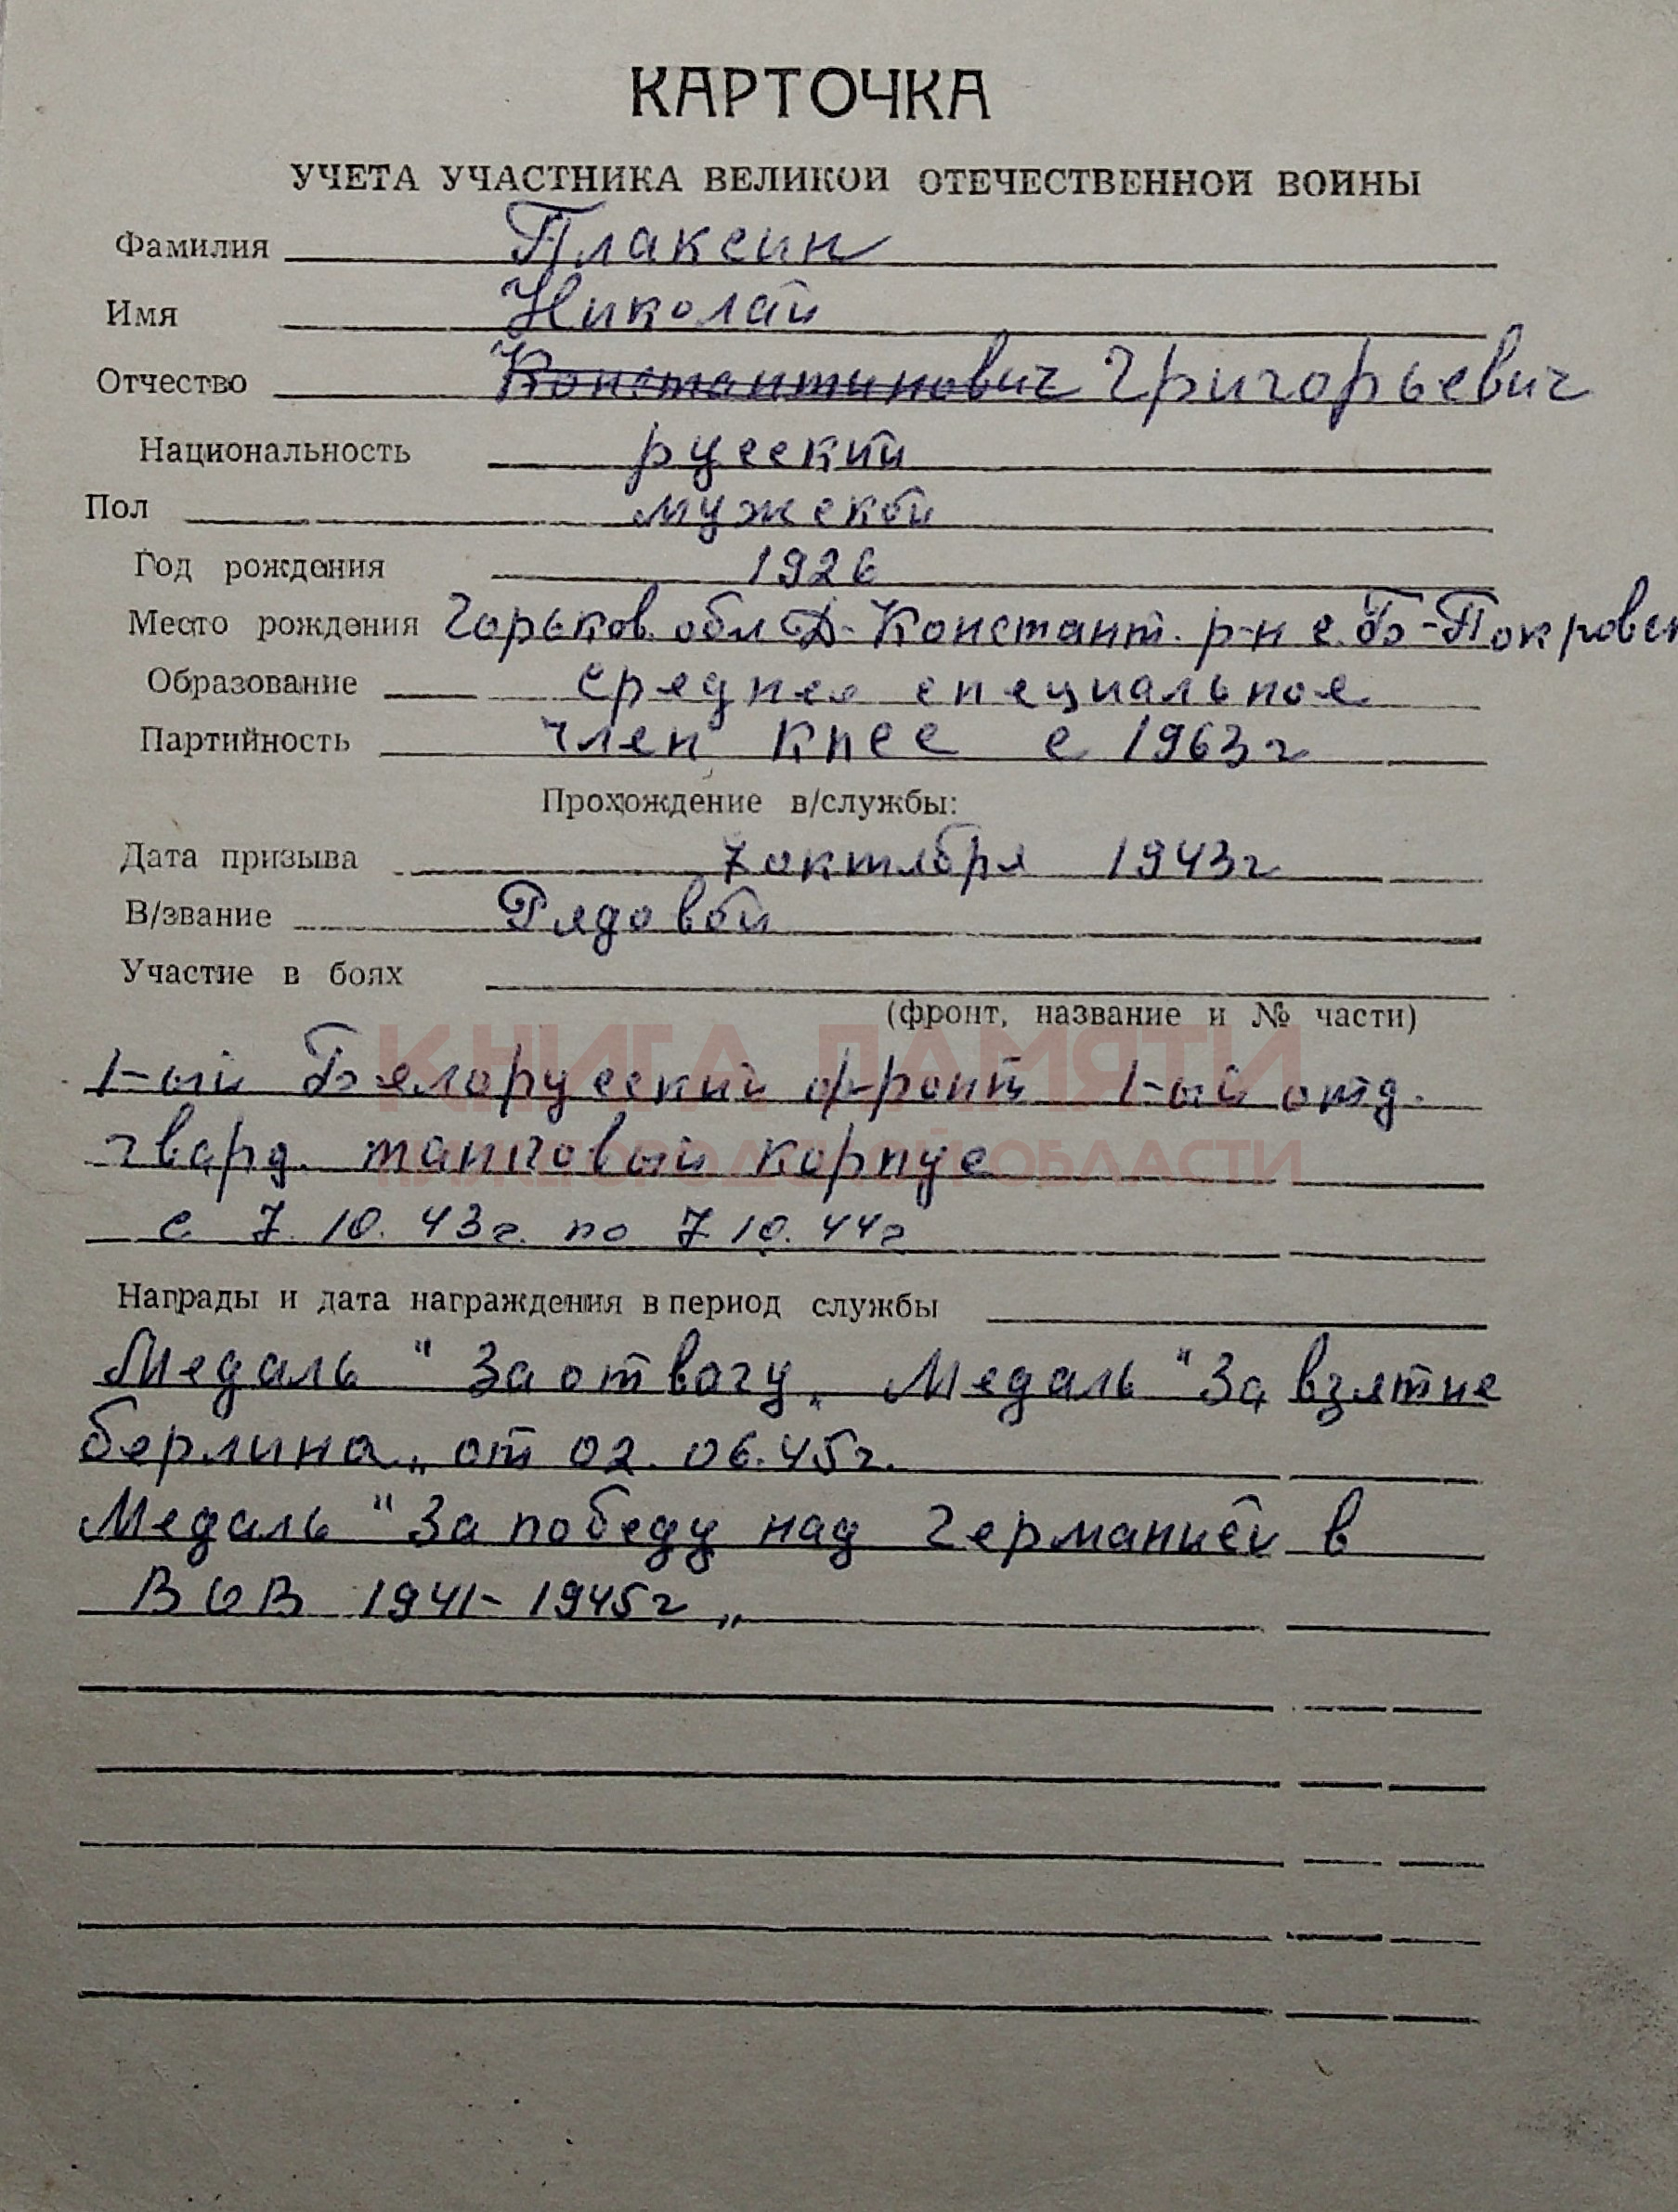 КАРТОЧКА
УЧЕТА УЧАСТНИКА ВЕЛИКОЙ ОТЕЧЕСТВЕННОЙ ВОЙНЫ
Фамилия Плаксин
Имя Николай
Отчество Константинович Григорьевич
Национальность русский
Пол мужской
Год рождения 1926
Место рождения Горьков. обл Д-Констант. р-н с. Б-Покровск
Образование среднее специальное
Партийность член КПСС с 1963г
Прохождение в/службы:
Дата призыва 7 октября 1943г
В/звание Рядовой
Участие в боях
(фронт, название и № части)
КНИГА ПАМЯТИ
1-ый Белорусский фронт 1-ый отд.
гвард. танковый корпус
НИЖЕГОРОДСКОЙ ОБЛАСТИ
с 7. 10. 43г. по 7 10. 44г
Награды и дата награждения в период службы
Медаль "За отвагу„ Медаль "За взятие
берлина„ от 02. 06. 45г.
Медаль "За победу над Германией в
ВОВ 1941-1945г„